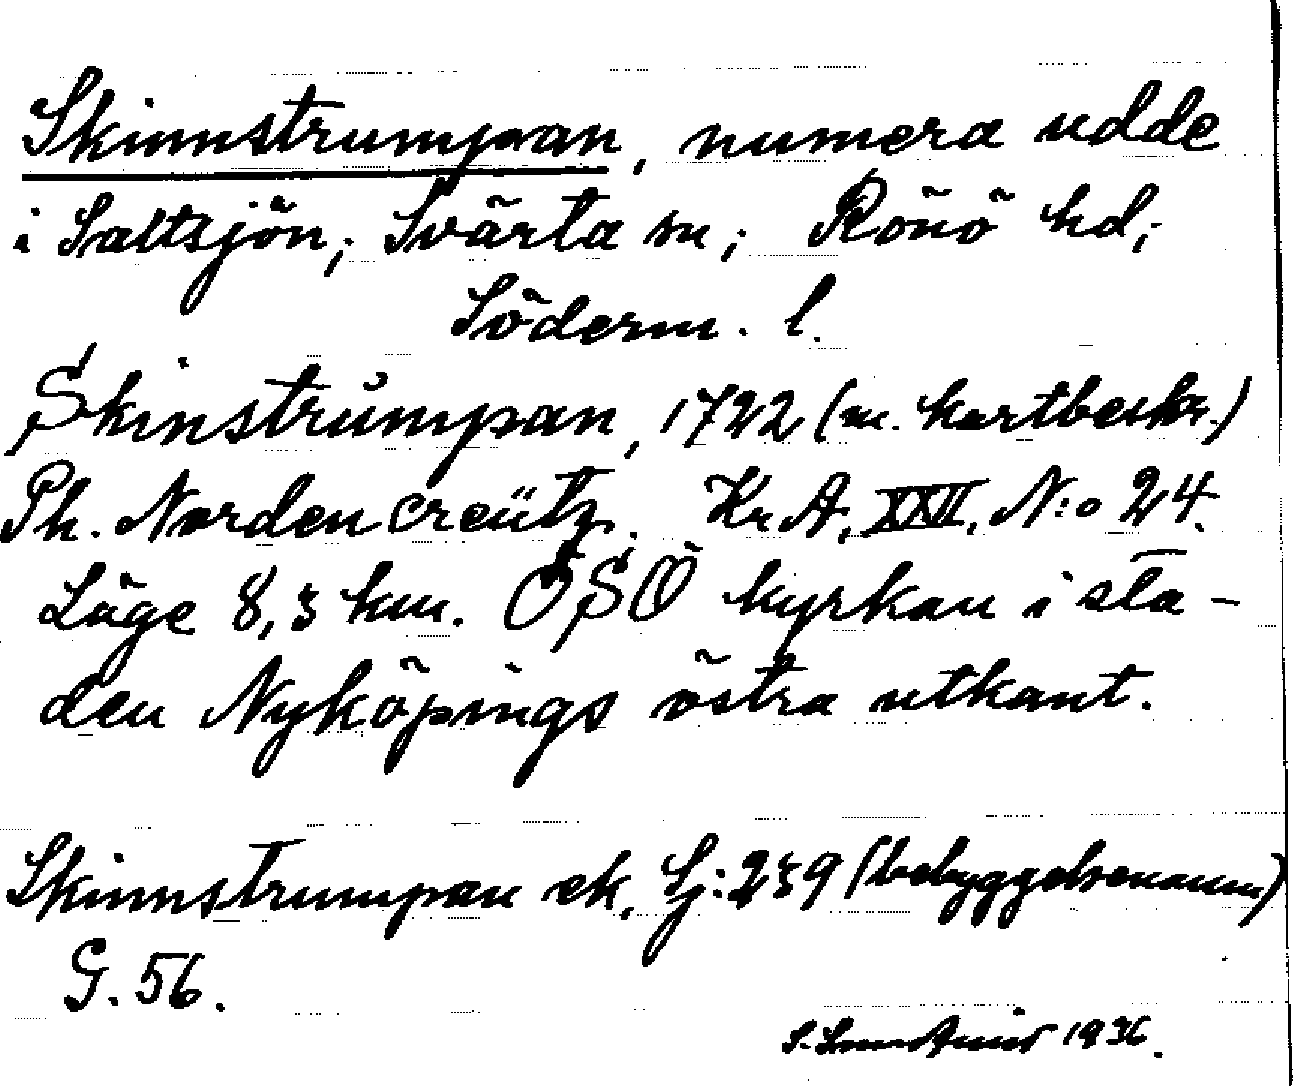 Skinnstrumpan, numera udde
i Saltsjön; Svärta sn; Rönö hd;
Söderm. l.
Skinstrůmpan, 1722 (m. kartbeskr.)
Ph. Nordencreütz. Kr.A. XXII. N:o 24.
Läge 8,3 km. OSO kyrkan i sta-
den Nyköpings östra utkant.
Skinnstrumpan ek. Lj:239 (bebyggelsenamn)
G. 56.
1936.